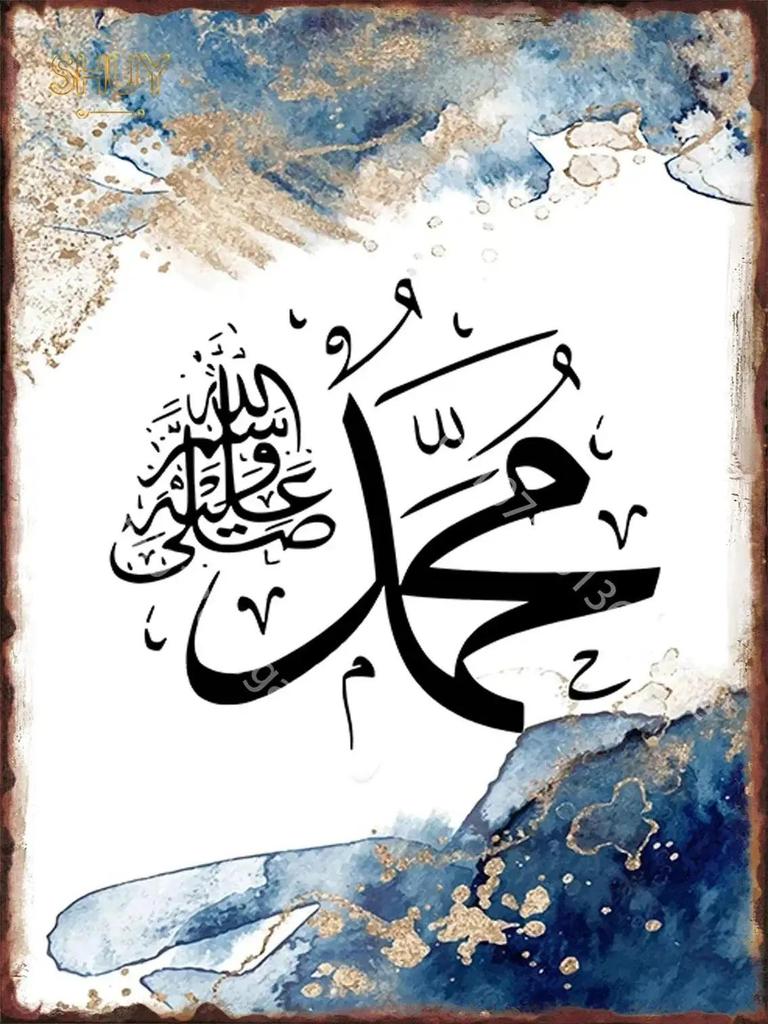 SHUY
مُحَمَّدٌ
صلى الله عليه وسلم